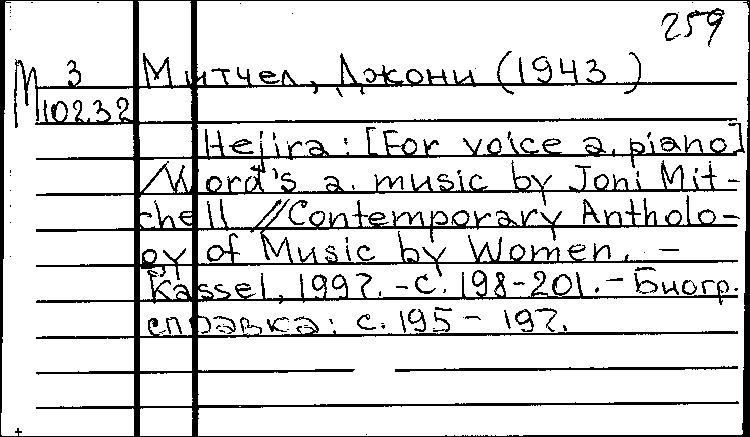 259
М 3 Митчел, Джони (1943 )
1102.32
Hejira : [For voice a. piano]
/Word's a. music by Joni Mit-
chell //Contemporary Antholo-
gy of Music by Women. –
Kassel, 1997. – С. 198-201. – Биогр.
справка: с. 195 – 197.